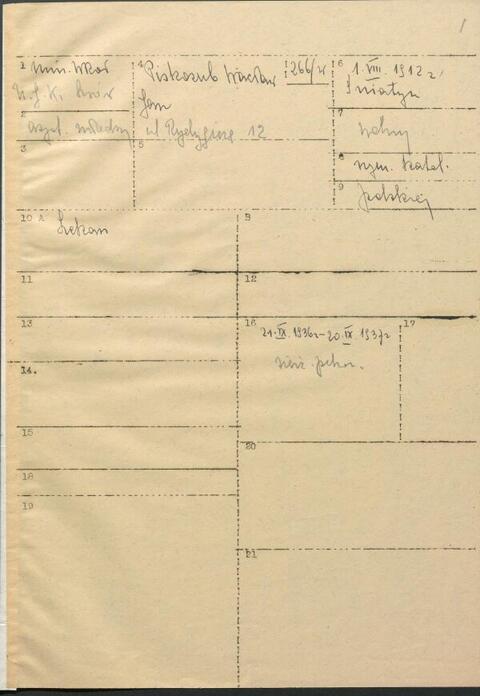 1
1 Min. WRiOP
U.J.K. Lwów
2
asyst. młodszy
3
4 Piskozub Wacław
Jan
ul Rydygiera 12
5
266/w
6 1. VIII. 1912 r.
Śniatyn
7
wolny
8
rzym. katol.
9
polskiej
10 A
Lekarz
B
11
12
13
14.
15
16
21. IX. 1936 r – 20. IX. 1937 r
17
18
19
20
21